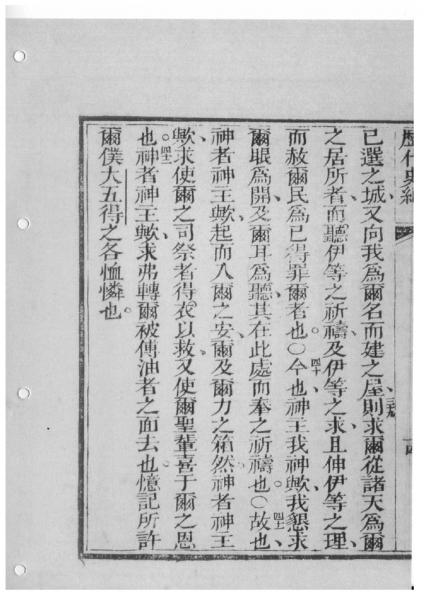 歷代史紀
已選之城、又向我為爾名而建之屋、三九則求爾從諸天為爾
之居所者、而聽伊等之祈禱、及伊等之求、且伸伊等之理、
而赦爾民為已得罪爾者也。○四十今也神王我神歟、我懇求
爾眼為開、及爾耳為聽、其在此處而奉之祈禱也。○四一故也
神者神王歟、起而入爾之安、爾及爾力之箱、然神者神王
歟、求使爾之司祭者得衣以救、又使爾聖輩喜于爾之恩
也。四二神者神王歟、求弗轉爾被傅油者之面去也、憶記所許
爾僕大五得之各恤憐也。